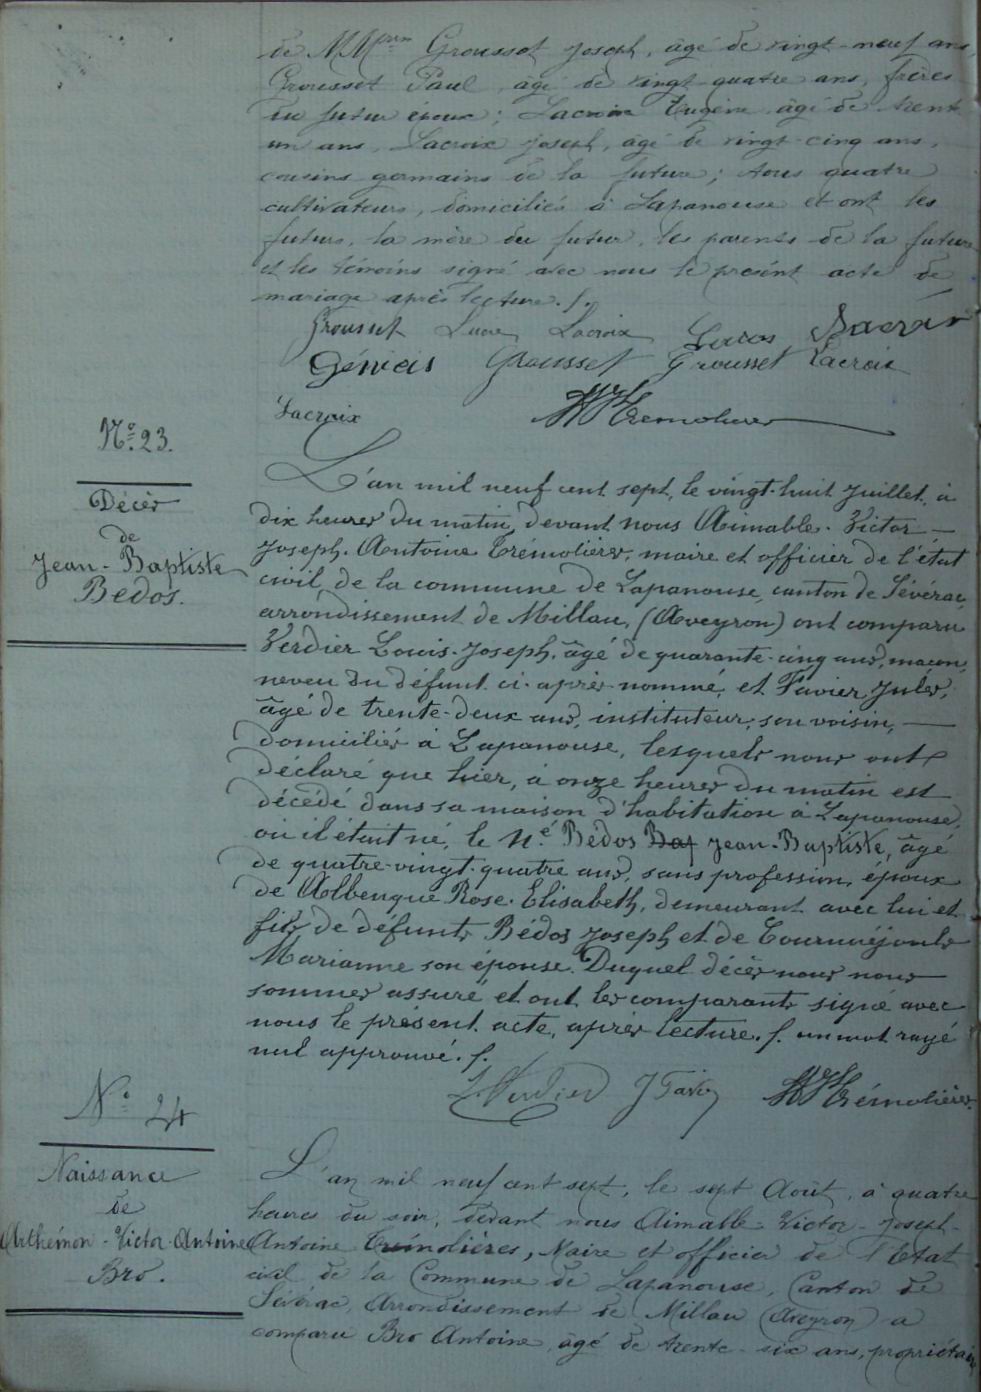 de MM. Grousset Joseph, âgé de vingt-neuf ans,
Grousset Paul, âgé de vingt-quatre ans, frères
du futur époux; Lacroix Eugène, âgé de trente
un ans, Lacroix Joseph, âgé de vingt-cinq ans,
cousins germains de la future; tous quatre
cultivateurs, domiciliés à Lapanouse et ont les
futurs, la mère du futur, les parents de la future
et les témoins signé avec nous le présent acte de
mariage après lecture. f.
Grousset Lacroix
Gervais Grousset Grousset Lacroix
Lacroix Trémolières
N°. 23.
Décès
de
Jean-Baptiste
Bedos.
L'an mil neuf cent sept, le vingt-huit Juillet, à
dix heures du matin, devant nous Aimable-Victor-
Joseph-Antoine Trémolières, maire et officier de l'état
civil de la commune de Lapanouse, canton de Sévérac,
arrondissement de Millau, (Aveyron) ont comparu
Verdier Louis-Joseph, âgé de quarante-cinq ans, maçon,
neveu du défunt ci-après nommé, et Favier Jules,
âgé de trente-deux ans, instituteur, son voisin,
domiciliés à Lapanouse, lesquels nous ont
déclaré que hier, à onze heures du matin est
décédé dans sa maison d'habitation à Lapanouse,
où il était né, le n.é Bédos Bap Jean-Baptiste, âgé
de quatre-vingt-quatre ans, sans profession, époux
de Albenque Rose-Elisabeth, demeurant avec lui et
fils de défunts Bédos Joseph et de Tournéjouls
Marianne son épouse. Duquel décès nous nous
sommes assuré et ont les comparants signé avec
nous le présent acte, après lecture. f. un mot rayé
nul approuvé. f.
L. Verdier J Favier Trémolières
N° 24
Naissance
de
Arthémon-Victor-Antoine
Bro.
L'an mil neuf cent sept, le sept Août, à quatre
heures du soir, devant nous Aimable-Victor-Joseph-
Antoine Trémolières, Maire et officier de l'Etat
civil de la Commune de Lapanouse, Canton de
Sévérac, Arrondissement de Millau (Aveyron) a
comparu Bro Antoine, âgé de trente-six ans, propriétaire